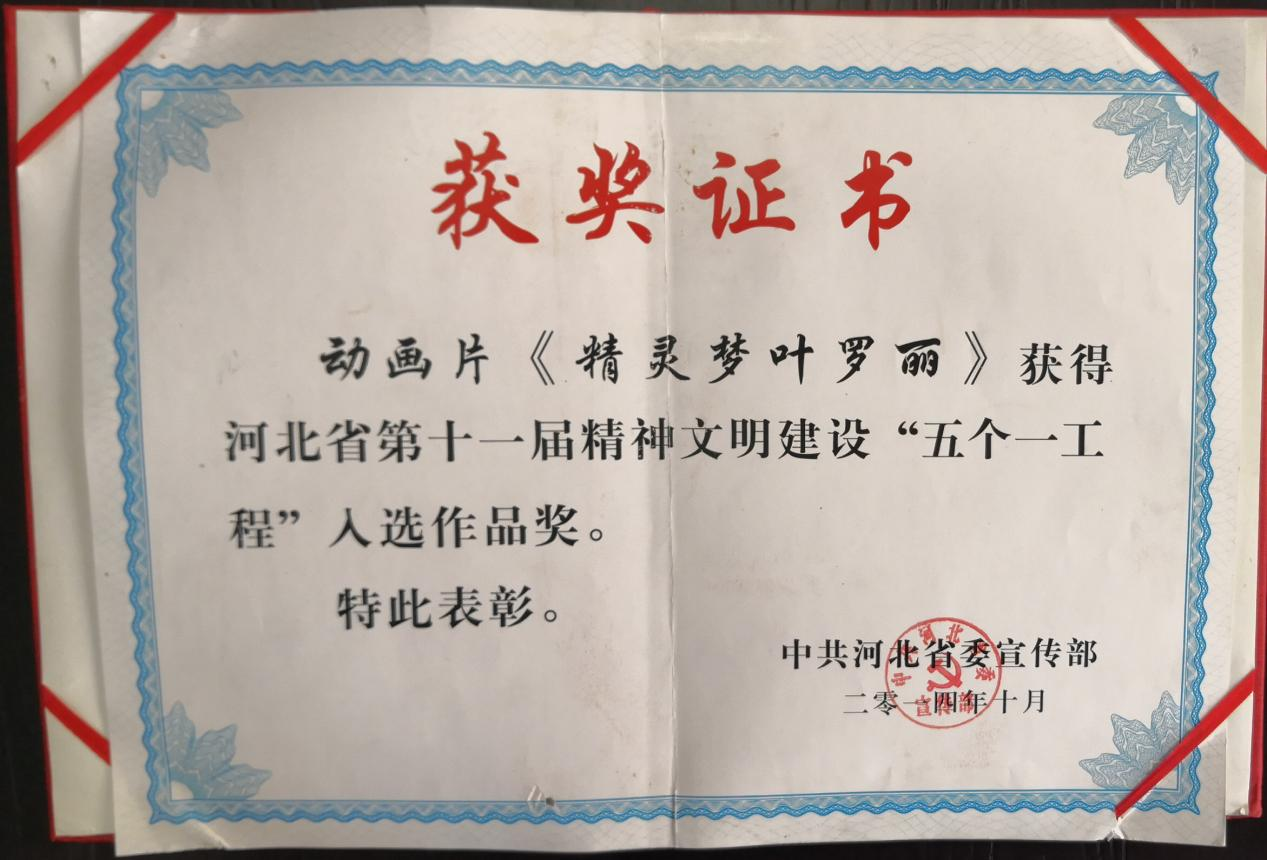 获奖证书
动画片《精灵梦叶罗丽》获得
河北省第十一届精神文明建设“五个一工
程”入选作品奖。
特此表彰。
中共河北省委宣传部
二零一四年十月
中共河北省委
宣传部